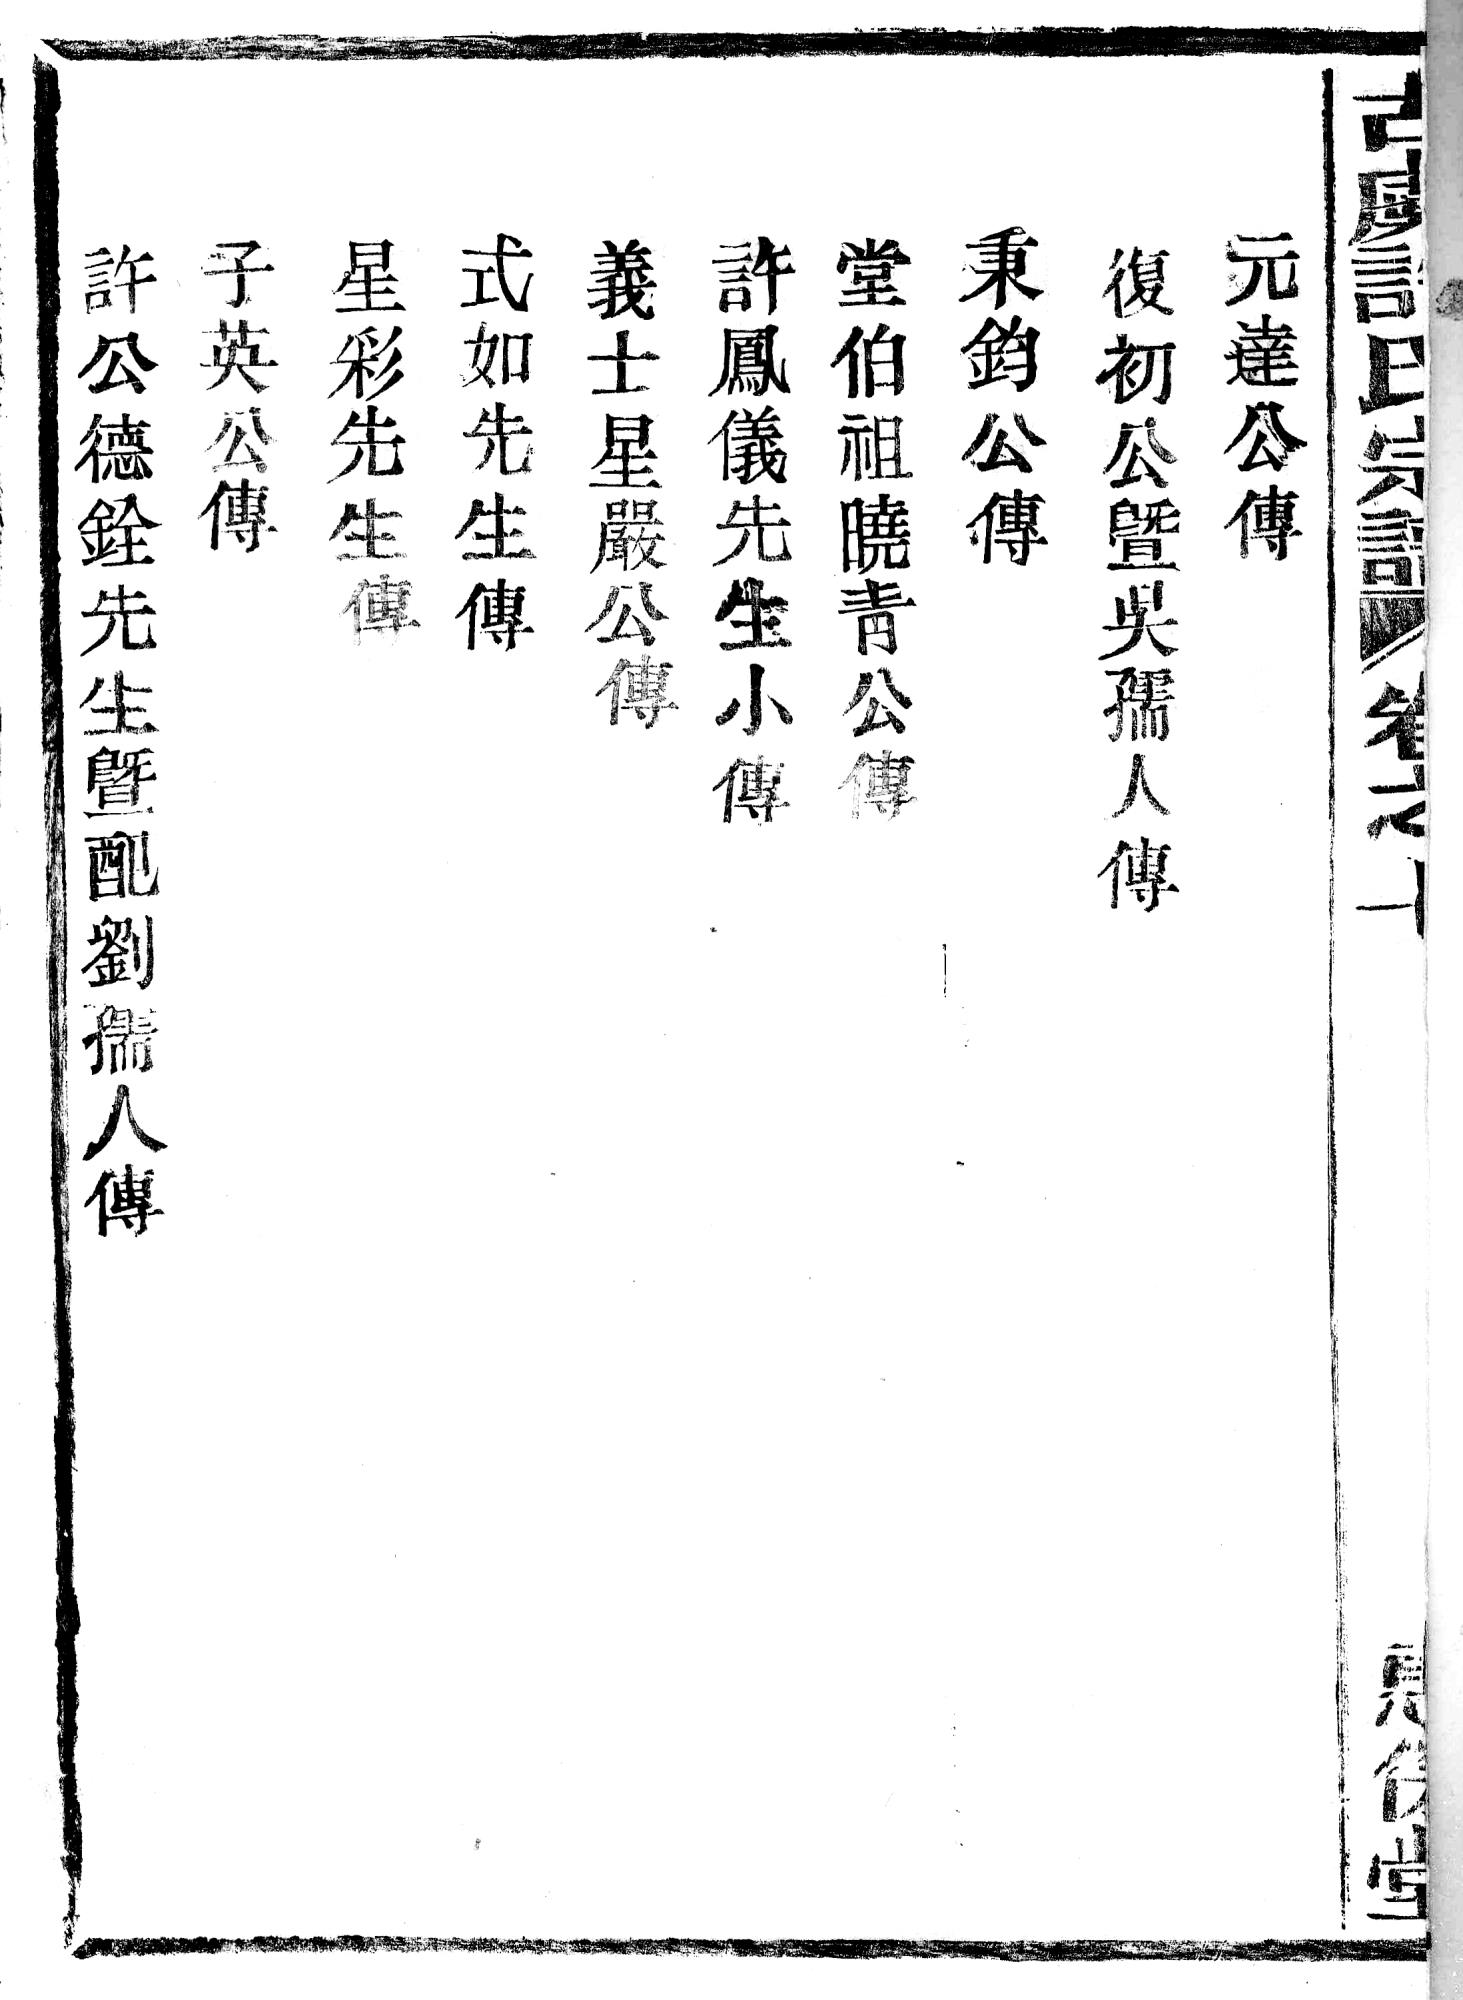 古虞許氏宗譜 卷之
堂
元達公傳
復初公暨吳孺人傳
秉鈞公傳
堂伯祖曉青公傳
許鳳儀先生小傳
義士星嚴公傳
式如先生傳
星彩先生傳
子英公傳
許公德銓先生暨配劉孺人傳